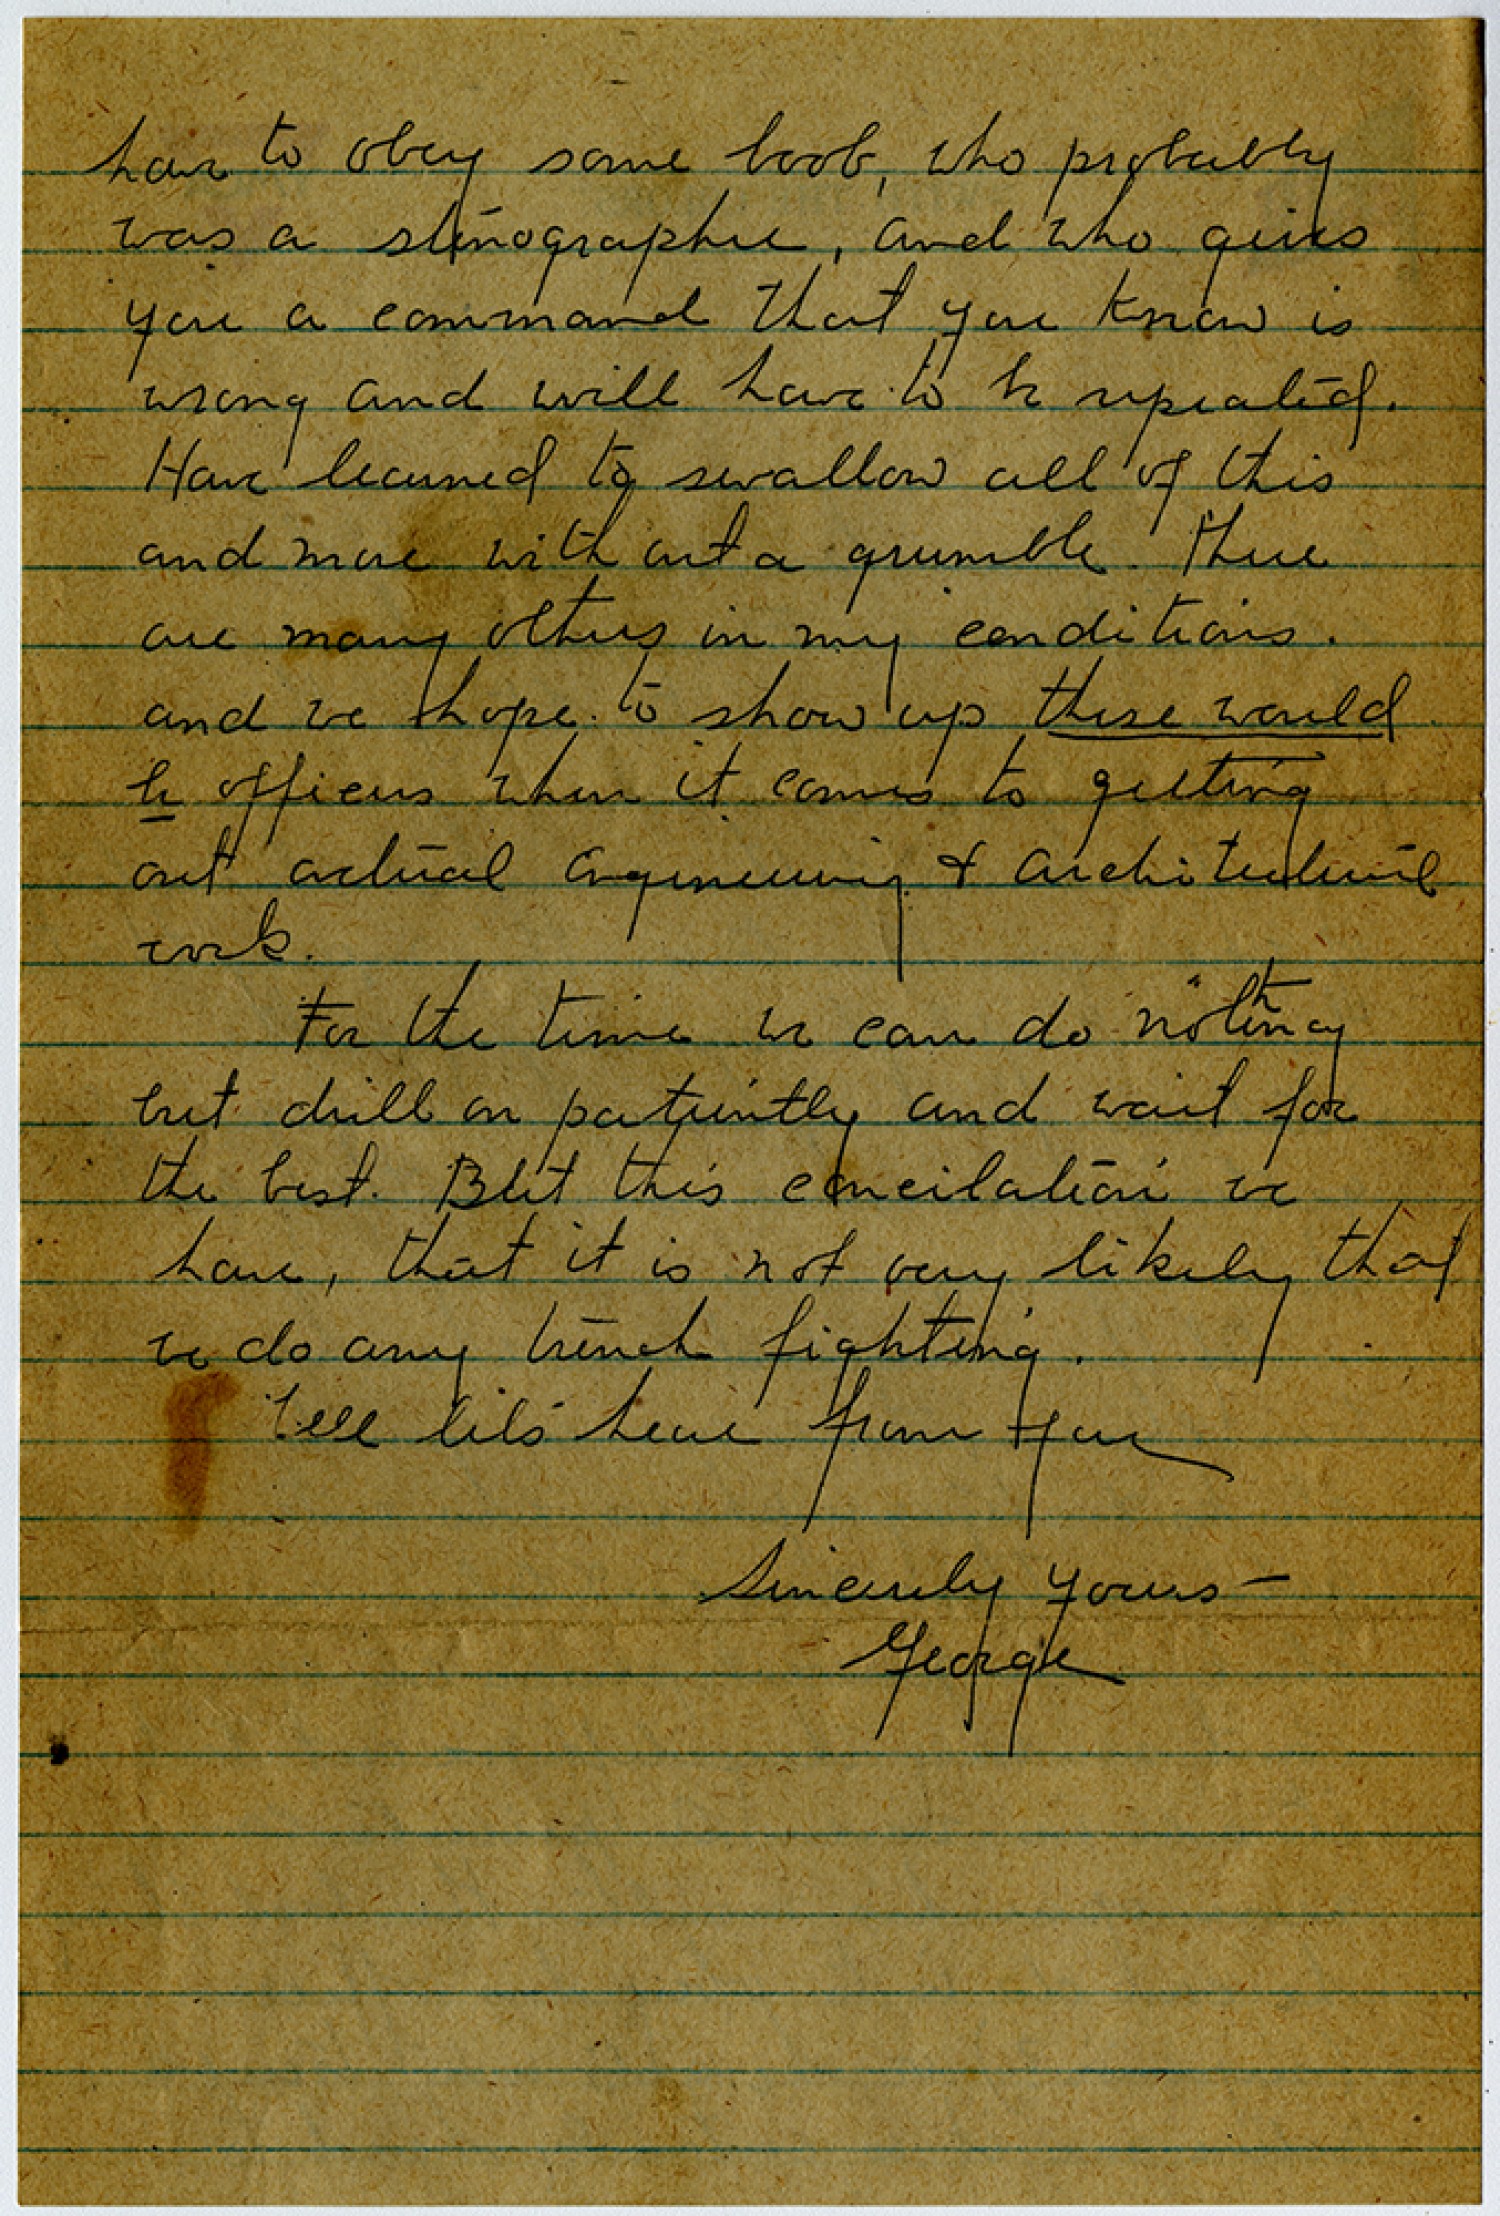 have to obey some boob, who probably
was a stenographer, and who gives
you a command that you know is
wrong and will have to be repeated.
Have learned to swallow all of this
and more without a grumble. There
are many others in my conditions.
and we hope to show up these would
be officers when it comes to getting
out actual engineering & architectural
work.
For the time we can do nothing
but drill on patiently and wait for
the best. But this concilation we
have, that it is not very likely that
we do any trench fighting.
Well let's hear from you
Sincerely yours —
George